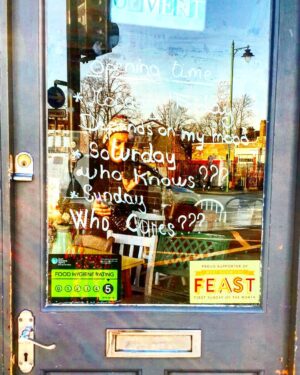 Opening time
Depends on my mood
* Saturday
who knows???
* Sunday
Who Cares???
FOOD HYGIENE RATING
5
PROUD SUPPORTER OF
FEAST
FIRST SUNDAY OF THE MONTH